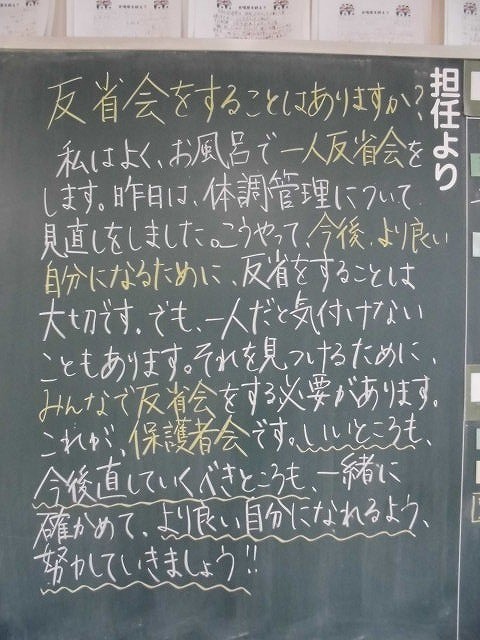 担任より
反省会をすることはありますか?
私はよく、お風呂で一人反省会を
します。昨日は、体調管理について
見直しをしました。こうやって、今後、より良い
自分になるために、反省をすることは
大切です。でも、一人だと気付けない
こともあります。それを見つけるために、
みんなで反省会をする必要があります。
これが、保護者会です。いいところも、
今後直していくべきところも、一緒に
確かめて、より良い自分になれるよう、
努力していきましょう!!